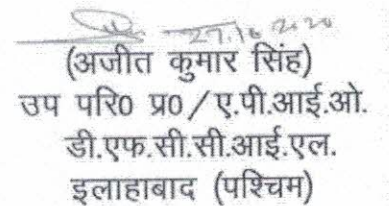 27.10.2020
(अजीत कुमार सिंह)
उप परि0 प्र0/ए.पी.आई.ओ.
डी.एफ.सी.सी.आई.एल.
इलाहाबाद (पश्चिम)